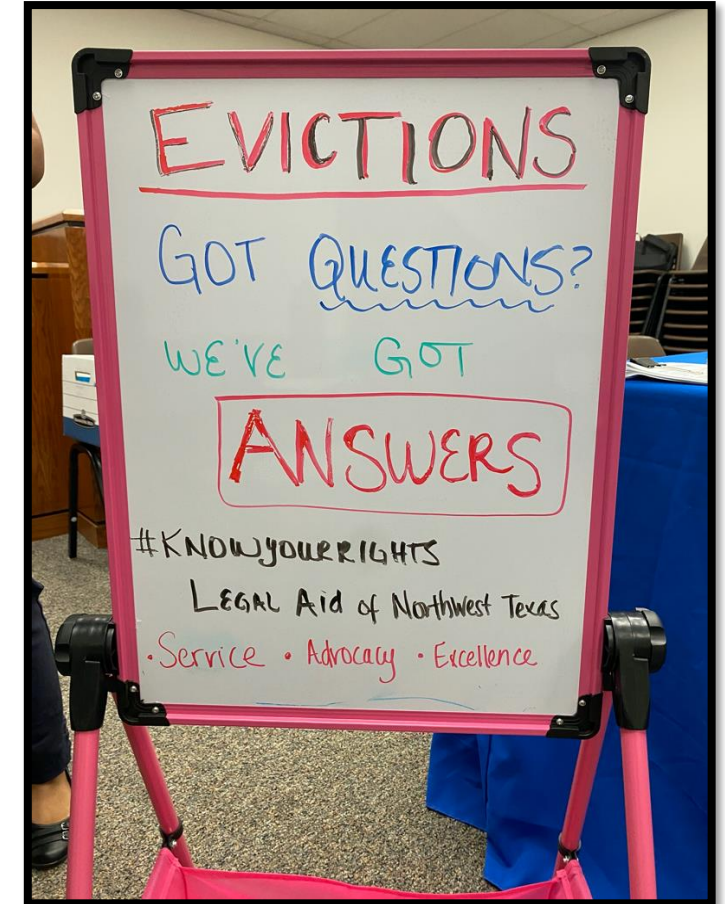 EVICTIONS
GOT QUESTIONS?
WE'VE GOT
ANSWERS
#KNOWYOURRIGHTS
LEGAL Aid of Northwest Texas
·Service · Advocacy · Excellence